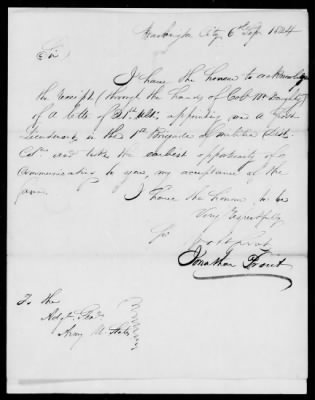 Washington City 6th Sep. 1824
Sir,
I have the honour to acknowledge
the receipt (through the hands of Col.
of a letter of 31st Ult. appointing me a first
Lieutenant in the 1st Brigade of militia Dist.
Cola. and take the earliest opportunity of
communicating to you, my acceptance of the
same.
I have the honour to be
Very respectfully
Sir
Jonathan Prout
To the
Adjt. Genl.
Army U States